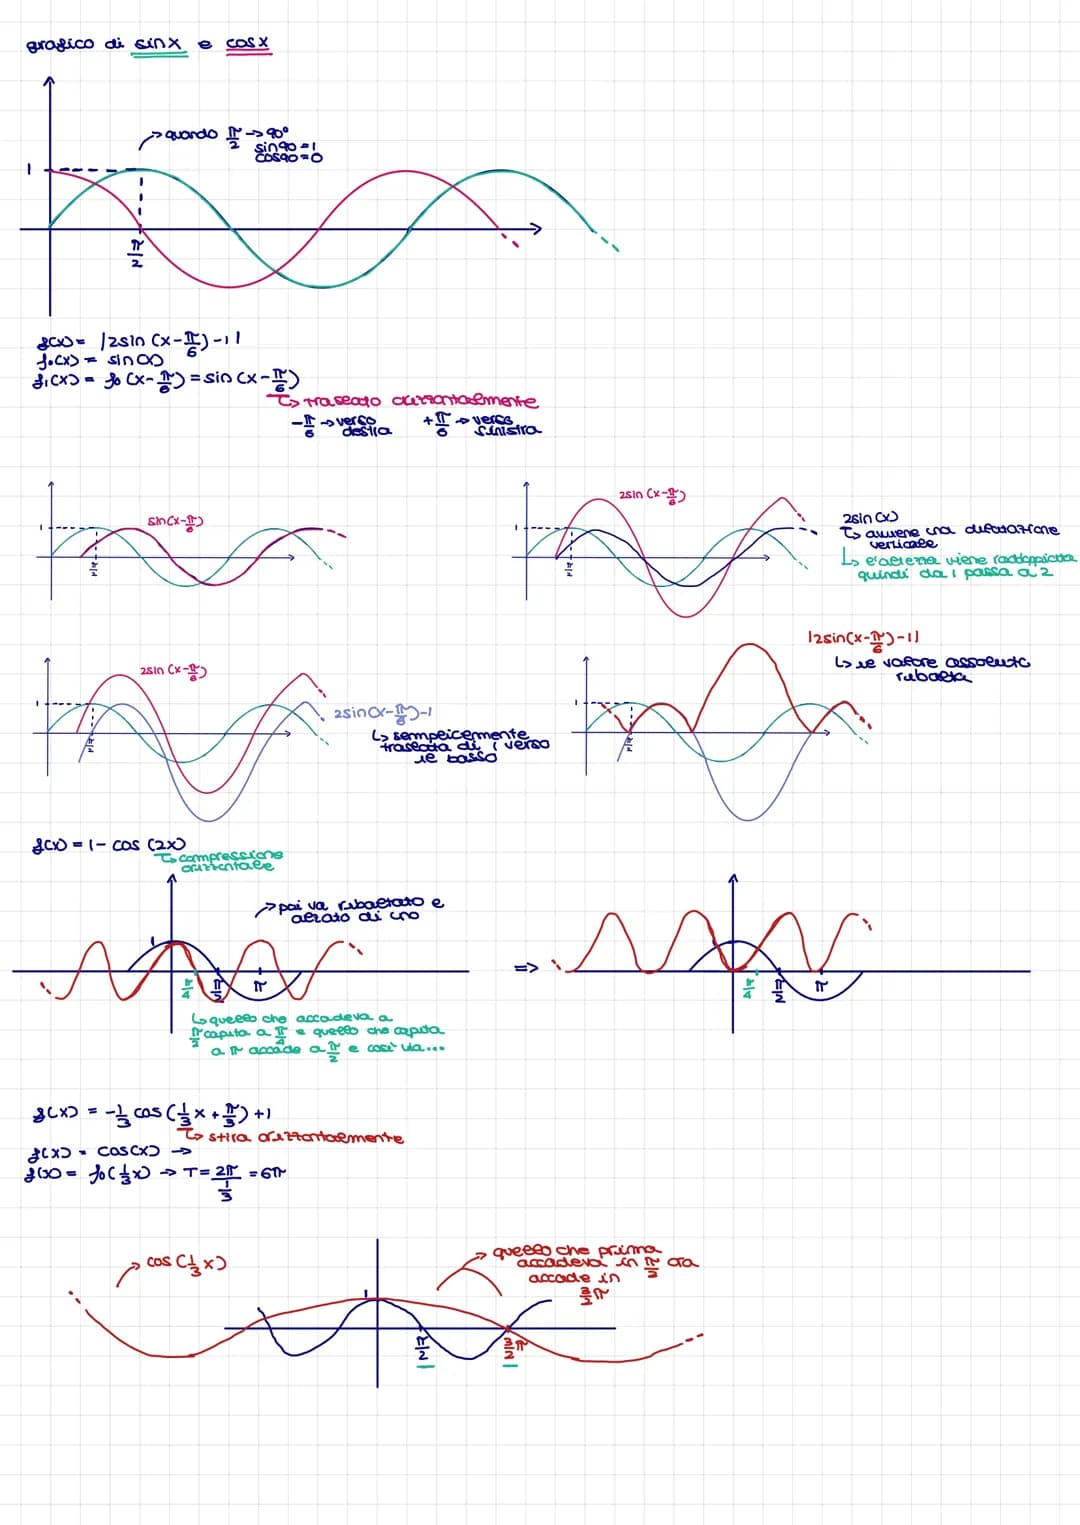 grafico di sinx e cosx
→ quando π/2 → 90°
sin90 = 1
cos90 = 0
1
π/2
f(x) = |2sin (x-π/6) -1|
f₀(x) = sin(x)
f₁(x) = f₀ (x-π/6) = sin (x-π/6)
↳ traslato orizzontalmente
-π/6 → verso destra +π/6 → verso sinistra
sin(x-π/6)
1
π/2
2sin (x-π/6)
1
π/2
2sin (x)
↳ avviene una dilatazione
verticale
↳ l'altezza viene raddoppiata
quindi da 1 passa a 2
2sin (x-π/6)
1
π/2
2sin(x-π/6)-1
↳ semplicemente
traslata di 1 verso
il basso
|2sin(x-π/6)-1|
↳ il valore assoluto
ribalta
1
π/2
f(x) = 1- cos (2x)
↳ compressione
orizzontale
→ poi va ribaltato e
alzato di uno
1
π/4 π/2 π
↳ quello che accadeva a
π/2 capita a π/4 e quello che capita
a π accade a π/2 e così via...
=>
π/4 π/2 π
f(x) = -1/3 cos (1/3 x + π/3) +1
↳ stira orizzontalmente
f(x) = cos(x) →
f(x) = f₀(1/3 x) → T = 2π/(1/3) = 6π
→ cos (1/3 x)
→ quello che prima
accadeva in π/2 ora
accade in
3/2 π
1
π/2
3/2 π